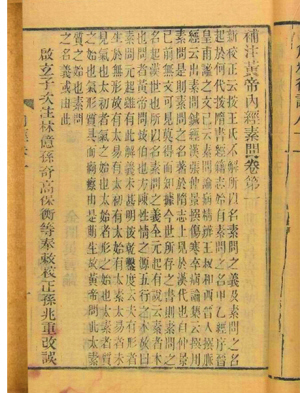 補注黃帝內經素問卷第一
新校正云按王氏不解所以名素問之義及素問之名
起於何代按隋書經籍志始有素問之名甲乙經序晉
皇甫謐之文已云素問論病精辨王叔和西晉人撰脈
經云出素問鍼經漢張仲景撰傷寒卒病論集云撰用
素問是則素問之名著於隋志上見於漢代也自仲景
已前無文可見莫得而知據今世所存之書則素問之
名起漢世也所以名素問之義全元起有說云素者本
也問者黃帝問岐伯也方陳性情之源五行之本故曰
素問元起雖有此解義未甚明按乾鑿度云夫有形者
生於無形故有太易有太初有太始有太素太易者未
見氣也太初者氣之始也太始者形之始也太素者質
之始也氣形質具而痾瘵由是萌生故黃帝問此太素
質之始也素問
之名義或由此
啟玄子次注林億孫奇高保衡等奉敕校正孫兆重改誤